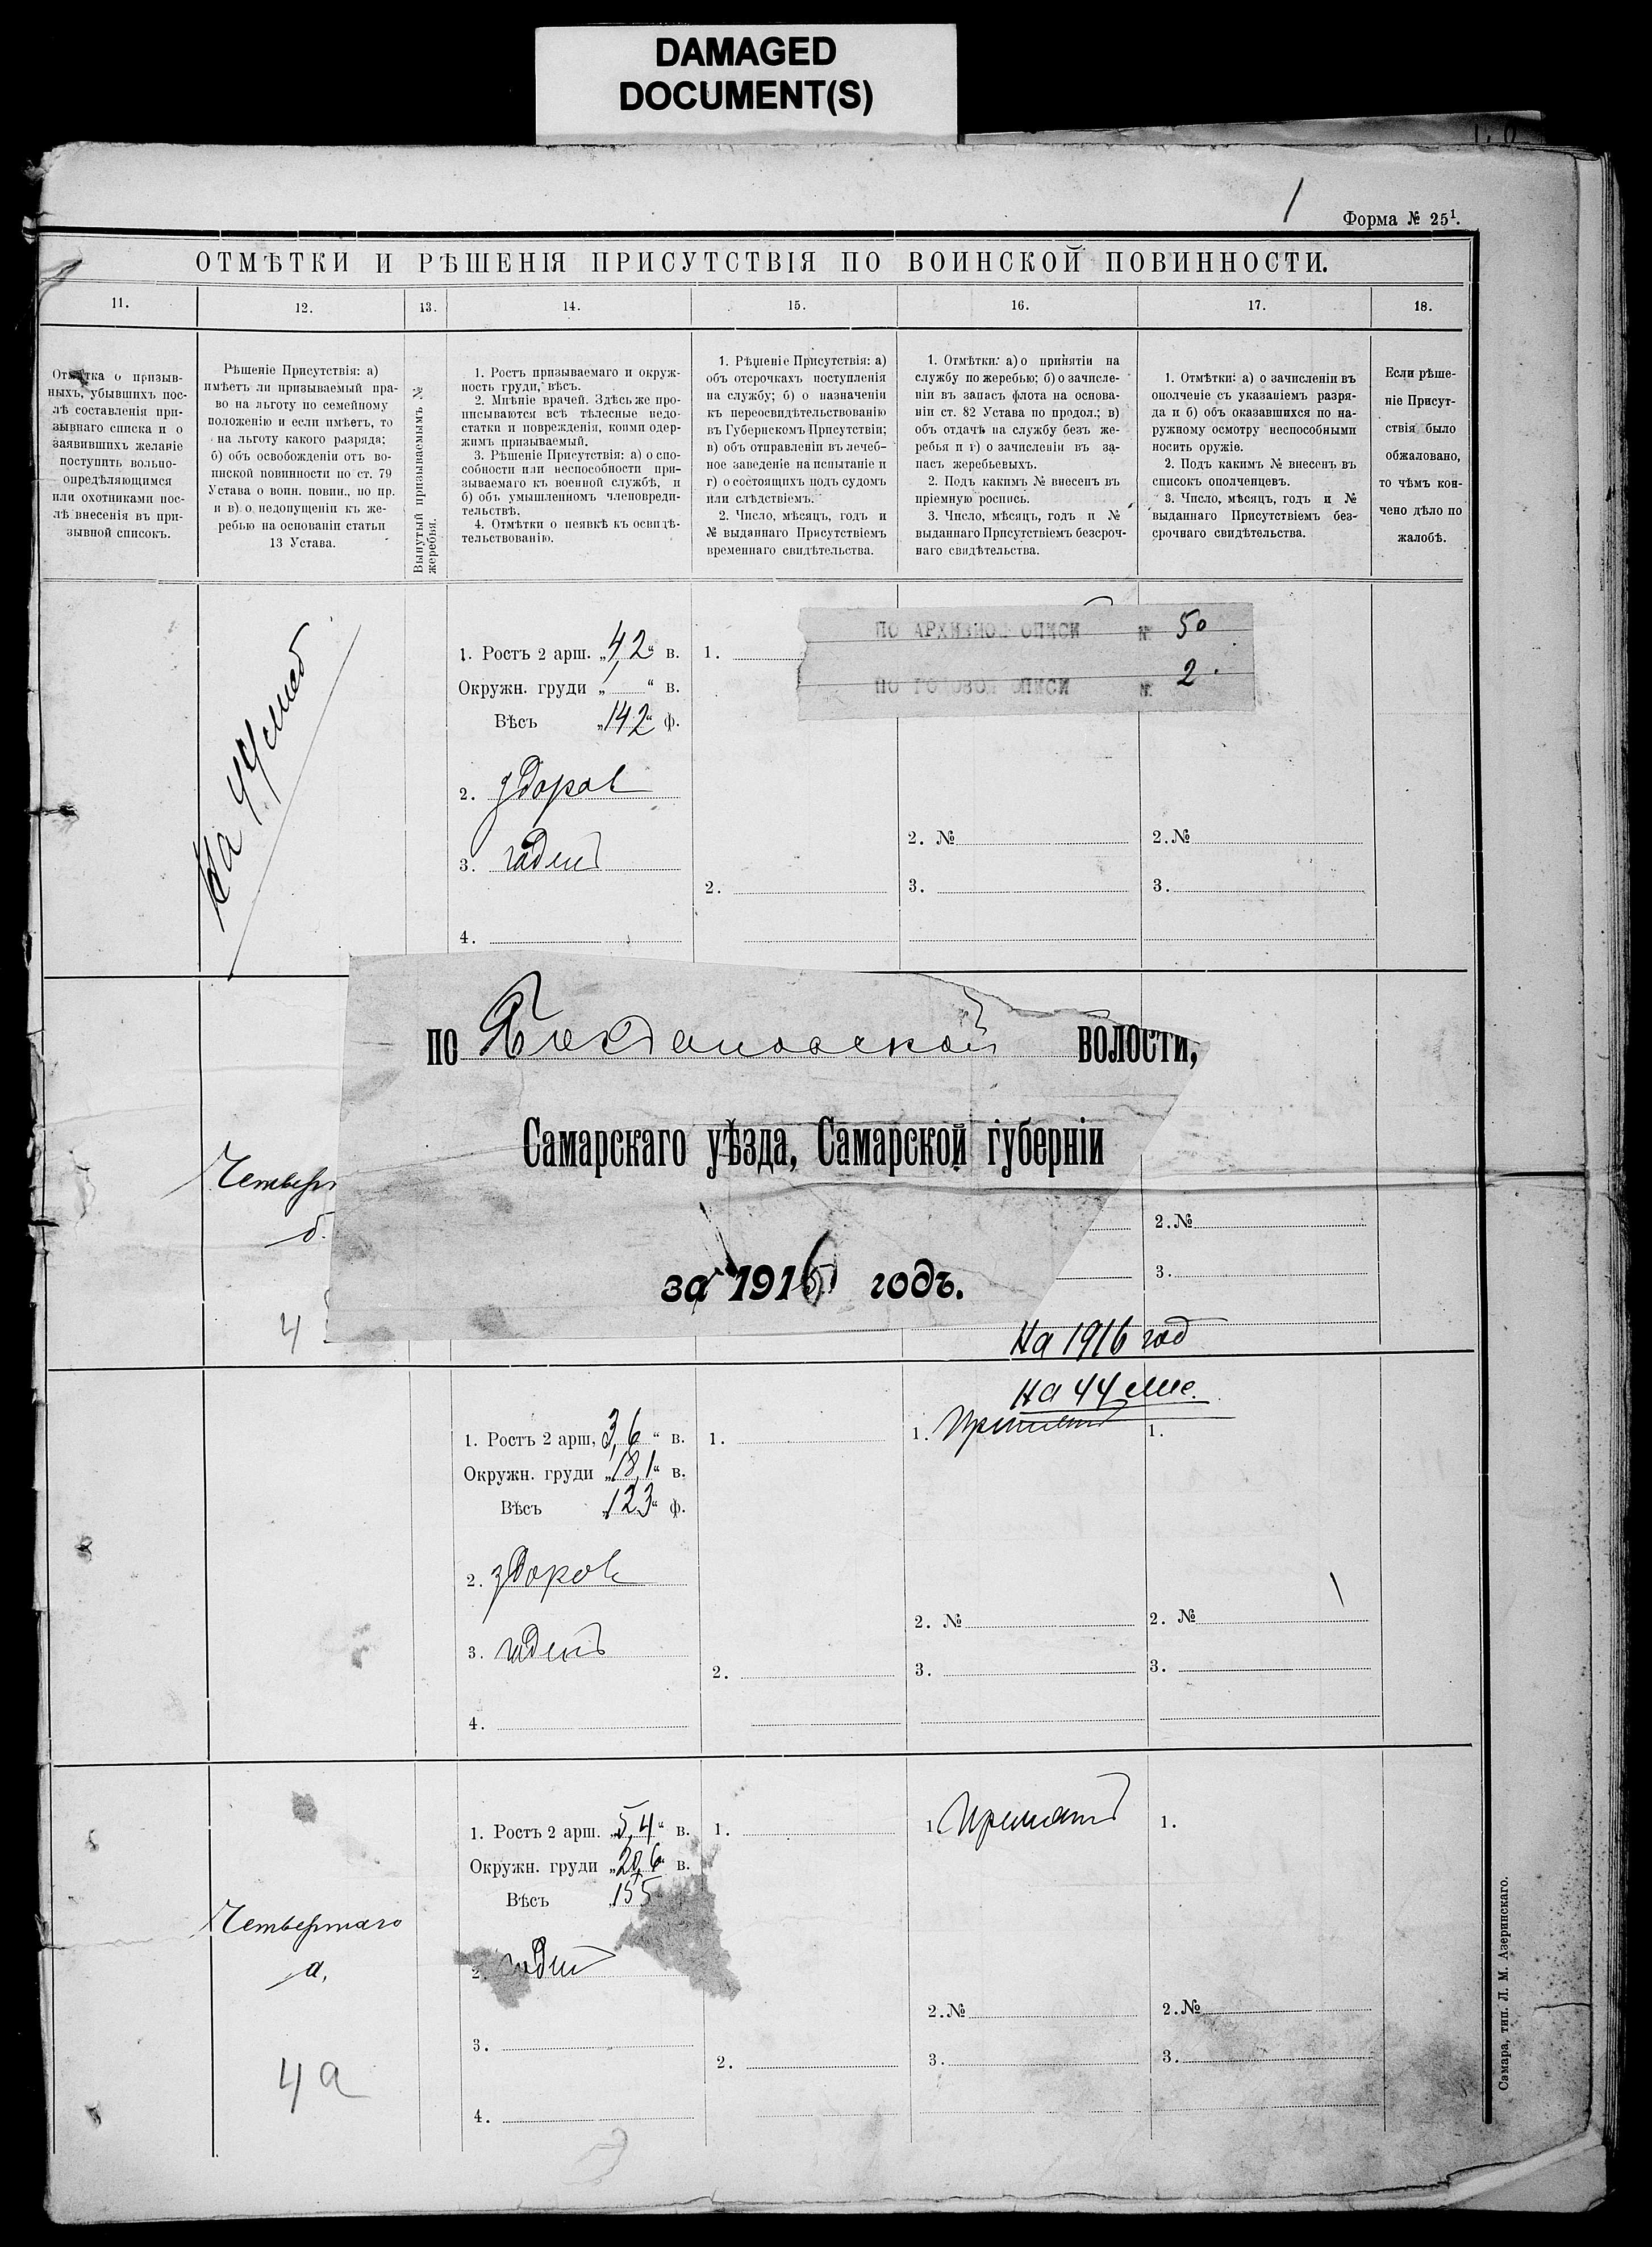 DAMAGED
DOCUMENT(S)
1
Форма № 25¹.
ОТМѢТКИ И РѢШЕНІЯ ПРИСУТСТВІЯ ПО ВОИНСКОЙ ПОВИННОСТИ.
11.
12.
13.
14.
15.
16.
17.
18.
Отмѣтка о призыв-
ныхъ, убывшихъ пос-
лѣ составленія при-
зывнаго списка и о
заявившихъ желаніе
поступить вольно-
опредѣляющимся
или охотниками пос-
лѣ внесенія въ при-
зывной списокъ.
Рѣшеніе Присутствія: а)
имѣетъ ли призываемый пра-
во на льготу по семейному
положенію и если имѣетъ, то
на льготу какого разряда;
б) объ освобожденіи отъ во-
инской повинности по ст. 79
Устава о воин. повин., по пр.
и в) о недопущеніи къ же-
ребью на основаніи статьи
13 Устава.
Вынутый призываемымъ №
жеребья.
1. Ростъ призываемаго и окруж-
ность груди, вѣсъ.
2. Мнѣніе врачей. Здѣсь же про-
писываются всѣ тѣлесные недо-
статки и поврежденія, коими одер-
жимъ призываемый.
3. Рѣшеніе Присутствія: а) о спо-
собности или неспособности при-
зываемаго къ военной службѣ, и
б) объ умышленномъ членовреди-
тельствѣ.
4. Отмѣтки о неявкѣ къ освидѣ-
тельствованію.
1. Рѣшеніе Присутствія: а)
объ отсрочкахъ поступленія
на службу; б) о назначеніи
къ переосвидѣтельствованію
въ Губернскомъ Присутствіи;
в) объ отправленіи въ лечеб-
ное заведеніе на испытаніе и
г) о состоящихъ подъ судомъ
или слѣдствіемъ.
2. Число, мѣсяцъ, годъ и
№ выданнаго Присутствіемъ
временнаго свидѣтельства.
1. Отмѣтки: а) о принятіи на
службу по жеребью; б) о зачисле-
ніи въ запасъ флота на основа-
ніи ст. 82 Устава по продол.; в)
объ отдачѣ на службу безъ же-
ребья и г) о зачисленіи въ за-
пасъ жеребьевыхъ.
2. Подъ какимъ № внесенъ въ
пріемную роспись.
3. Число, мѣсяцъ, годъ и №
выданнаго Присутствіемъ безсроч-
наго свидѣтельства.
1. Отмѣтки: а) о зачисленіи въ
ополченіе съ указаніемъ разря-
да и б) объ оказавшихся по на-
ружному осмотру неспособными
носить оружіе.
2. Подъ какимъ № внесенъ въ
списокъ ополченцевъ.
3. Число, мѣсяцъ, годъ и №
выданнаго Присутствіемъ без-
срочнаго свидѣтельства.
Если рѣше-
ніе Присут-
ствія было
обжаловано,
то чѣмъ кон-
чено дѣло по
жалобѣ.
На 44
1. Ростъ 2 арш. „4,2“ в.
Окружн. груди „ “ в.
Вѣсъ „142“ ф.
2. здоров
3. годенъ
4.
1.
2.
ПО АРХИВНОЙ ОПИСИ № 50
ПО ГОДОВОЙ ОПИСИ № 2
2. №
3.
2. №
3.
по Богдановской волости,
Самарскаго уѣзда, Самарской губерніи
за 1916 годъ.
Четверт
б.
4
2. №
3.
На 1916 год
На 44
1. Ростъ 2 арш. 3,6 “ в.
Окружн. груди „18,1“ в.
Вѣсъ „123“ ф.
2. здоровъ
3. годенъ
4.
1.
2.
1. Принятъ
2. №
3.
1.
2. №
3.
Четвертаго
а.
4 а
1. Ростъ 2 арш. „5,4“ в.
Окружн. груди „20,6“ в.
Вѣсъ „155
2. годен
3.
4.
1.
2.
1. Принятъ
2. №
3.
1.
2. №
3.
Самара, тип. Л. М. Азеринскаго.